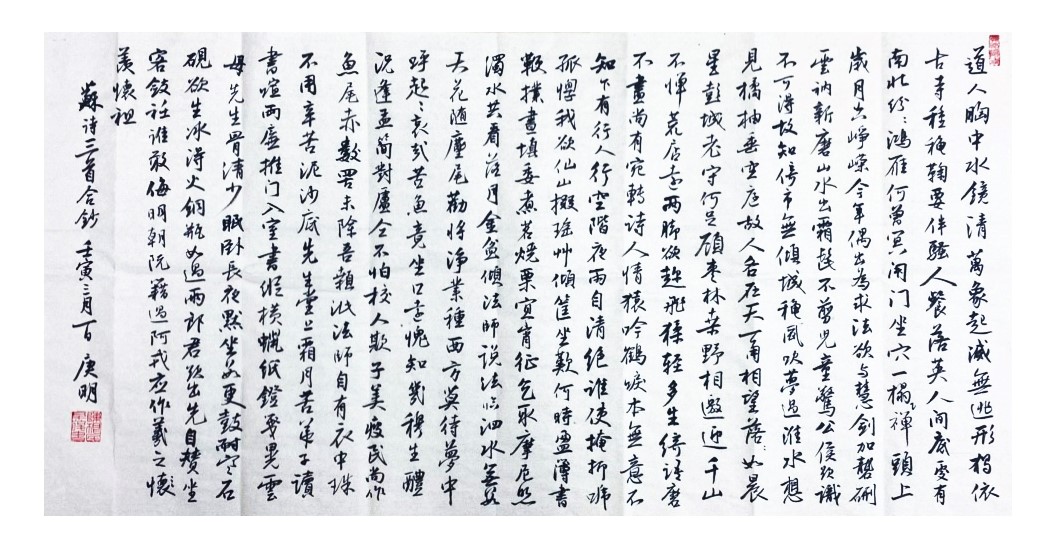 道人胸中水鏡清萬象起滅無逃形獨依
古寺種秋鞠要伴騷人餐落英人間底處有
南北紛紛鴻雁何曾冥閉門坐穴一榻禪頭上
歲月空崢嶸今年偶出為求法欲与慧劍加礱硎
雲衲新磨山水出霜髭不剪児童驚公侯欲識
不可得故知倚市無傾城秋風吹夢過淮水想
見橘柚垂空庭故人各在天一角相望落落如晨
星彭城老守何足顧棗林桑野相邀迎千山
不憚荒店遠兩脚欲趁飛猱輕多生綺語磨
不盡尚有宛轉詩人情猿吟鶴唳本無意不
知下有行人行空階夜雨自清絕誰使掩抑啼
孤惸我欲仙山掇瑤艸傾筐坐歎何時盈簿書
鞭撲晝填委煮茗燒栗宜宵征乞取摩尼照
濁水共看落月金盆傾法師說法臨泗水無数
天花隨麈尾勸將淨業種西方莫待夢中
呼起起哀哉若魚竟坐口遠愧知幾穆生醴
況逢孟簡對盧仝不怕校人欺子美疲民尚作
魚尾赤數罟未除吾顙泚法師自有衣中珠
不用辛苦泥沙底先生堂上霜月苦弟子讀
書喧兩廡推門入室書縱橫蠟紙鐙籠晃雲
母先生骨清少眠卧長夜默坐數更鼓耐寒石
硯欲生冰得火銅瓶如過雨郎君欲出先自贊坐
客斂衽誰敢侮明朝阮籍過阿戎應作羲之懷
羨懷祖
蘇詩三首合鈔 壬寅三月 庚明